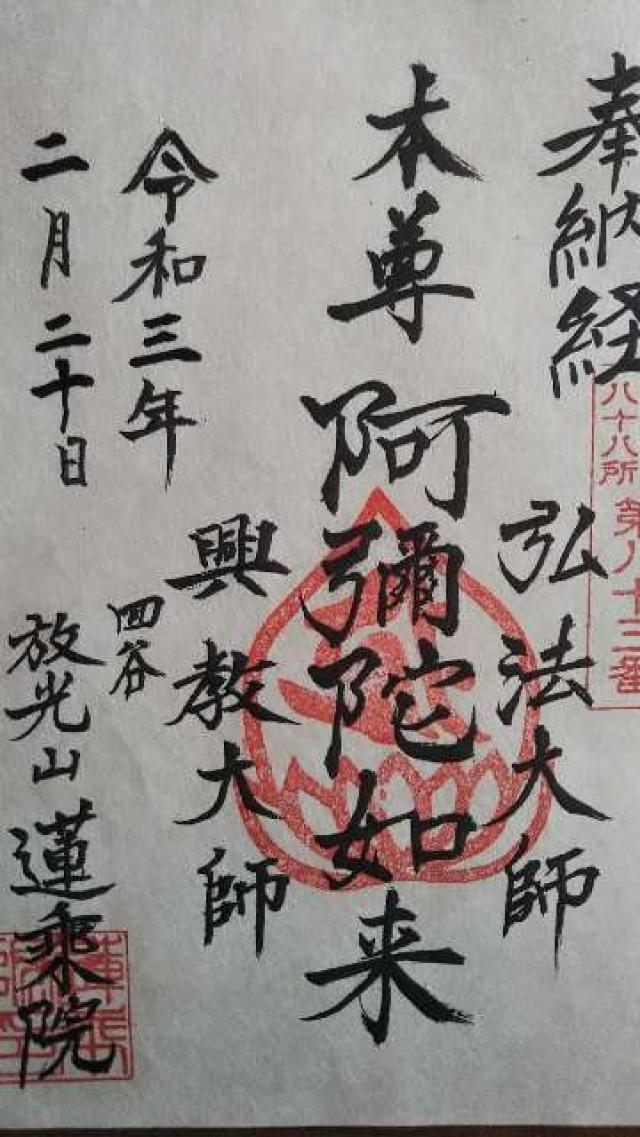 奉納経
八十八所
第八十三番
弘法大師
本尊 阿彌陀如来
興教大師
令和三年
二月二十日
四谷
放光山 蓮乗院